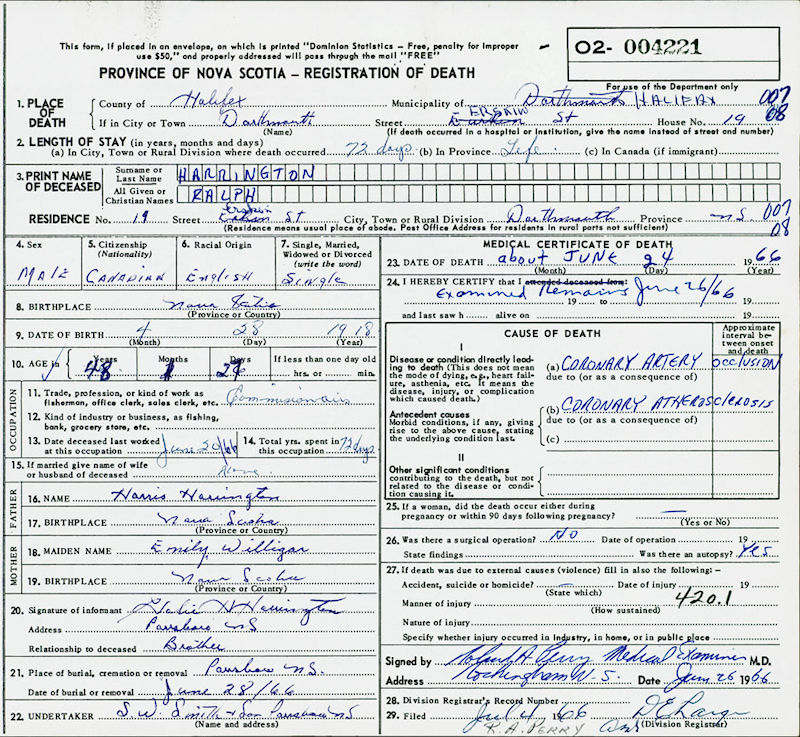 This form, if placed in an envelope, on which is printed "Dominion Statistics – Free, penalty for improper
use $50," and properly addressed will pass through the mail "FREE"
O2- 004221
PROVINCE OF NOVA SCOTIA – REGISTRATION OF DEATH
For use of the Department only
1. PLACE OF DEATH County of Halifex Municipality of Dartmouth HALIFAX 007
If in City or Town Dartmouth Street ERSKIN St House No. 19 08
(Name) (If death occurred in a hospital or institution, give the name instead of street and number)
2. LENGTH OF STAY (in years, months and days)
(a) In City, Town or Rural Division where death occurred 72 days (b) In Province Life (c) In Canada (if immigrant)
3. PRINT NAME OF DECEASED Surname or Last Name HARRINGTON
All Given or Christian Names RALPH
RESIDENCE No. 19 Street Erskin St City, Town or Rural Division Dartmouth Province N.S. 007
08
(Residence means usual place of abode. Post Office Address for residents in rural parts not sufficient)
4. Sex 5. Citizenship (Nationality) 6. Racial Origin 7. Single, Married, Widowed or Divorced (write the word)
MALE CANADIAN ENGLISH Single
8. BIRTHPLACE Nova Scotia
(Province or Country)
9. DATE OF BIRTH 4 28 1918
(Month) (Day) (Year)
10. AGE in Years Months Days If less than one day old
48 1 29 hrs. or min.
OCCUPATION
11. Trade, profession, or kind of work as
fisherman, office clerk, sales clerk, etc. Commissionair
12. Kind of industry or business, as fishing,
bank, grocery store, etc.
13. Date deceased last worked at this occupation June 20/66 14. Total yrs. spent in this occupation 72 days
15. If married give name of wife
or husband of deceased None
FATHER
16. NAME Harris Harrington
17. BIRTHPLACE Nova Scotia
(Province or Country)
MOTHER
18. MAIDEN NAME Emily Willigar
19. BIRTHPLACE Nova Scotia
(Province or Country)
20. Signature of informant H Harrington
Address Parrsboro NS
Relationship to deceased Brother
21. Place of burial, cremation or removal Parrsboro N.S.
Date of burial or removal June 28/66
22. UNDERTAKER S.W. Smith & Son Parrsboro NS
(Name and address)
MEDICAL CERTIFICATE OF DEATH
23. DATE OF DEATH about JUNE 24 1966
(Month) (Day) (Year)
24. I HEREBY CERTIFY that I attended deceased from:
Examined Remains June 26/66
19 to 19
and last saw h alive on 19
CAUSE OF DEATH
Approximate interval between onset and death
I
Disease or condition directly leading
to death (This does not mean
the mode of dying, e.g., heart failure,
asthenia, etc. It means the
disease, injury, or complication
which caused death.)
(a) CORONARY ARTERY OCCLUSION
due to (or as a consequence of)
Antecedent causes
Morbid conditions, if any, giving
rise to the above cause, stating
the underlying condition last.
(b) CORONARY ATHEROSCLEROSIS
due to (or as a consequence of)
(c)
II
Other significant conditions
contributing to the death, but not
related to the disease or condition
causing it.
25. If a woman, did the death occur either during
pregnancy or within 90 days following pregnancy? —
(Yes or No)
26. Was there a surgical operation? NO Date of operation 19
State findings Was there an autopsy? Yes
27. If death was due to external causes (violence) fill in also the following:–
Accident, suicide or homicide? – Date of injury 19
(State which)
Manner of injury 420.1
(How sustained)
Nature of injury
Specify whether injury occurred in industry, in home, or in public place
Signed by Robert A. Perry Medical Examiner M.D.
Address Rockingham N.S. Date June 26 1966
28. Division Registrar's Record Number
29. Filed Jul 4 1966
R.A. PERRY (Division Registrar)